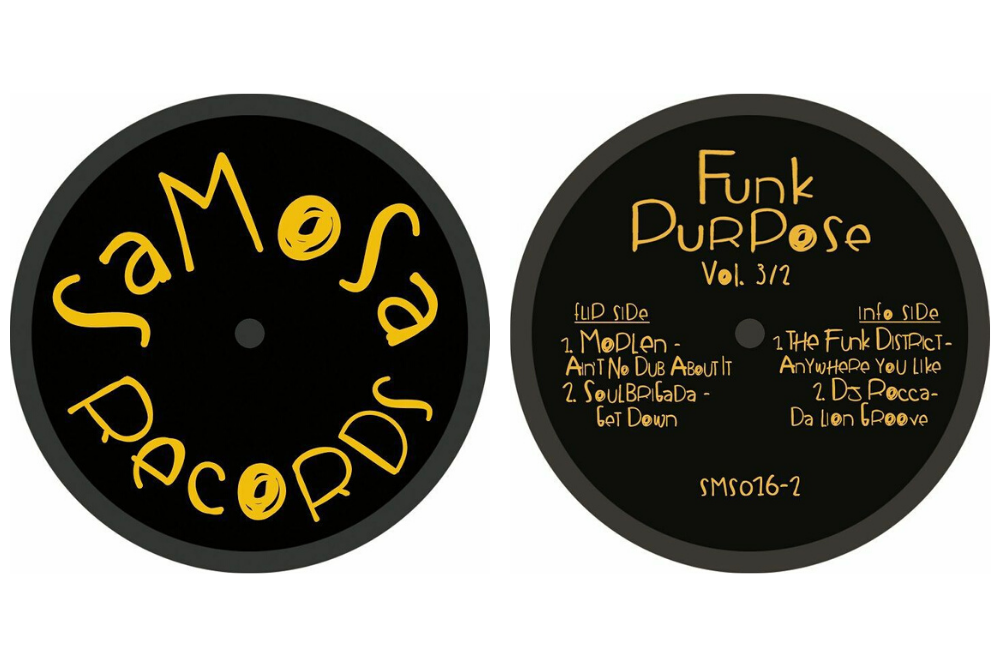 SaMOSa
RecORDS
Funk
PURPOSe
Vol. 3/2
fLIP SIDe
1. MORLen -
AIn'T NO DUB ABOUT IT
2. SOULBRIGaDa -
GeT DOWn
Info SIDe
1. THe Funk DISTRICT -
AnYWHeRe YOU LIke
2. DJ ROCCa-
Da LIOn GROOVe
SMS026-2